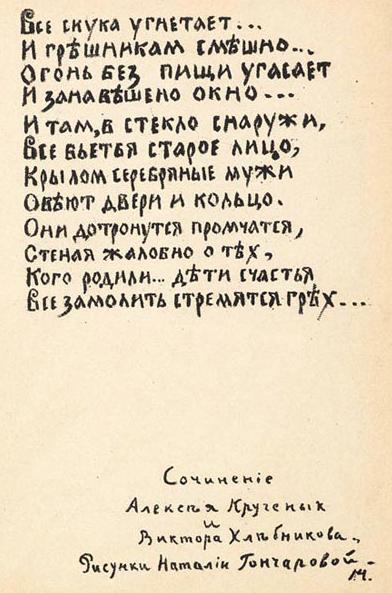 Все скука угнетает...
И грѣшникам смѣшно...
Огонь без пищи угасает
И занавѣшено окно...
И там, в стекло снаружи,
Все бьется старое лицо,
Крылом серебряные мужи
Овѣют двери и кольцо.
Они дотронутся промчатся,
Стеная жалобно о тѣх,
Кого родили... дѣти счастья
Все замолить стремятся грѣх...
Сочиненіе
Алексѣя Крученых
и
Виктора Хлѣбникова.
Рисунки Наталіи Гончаровой.
14.